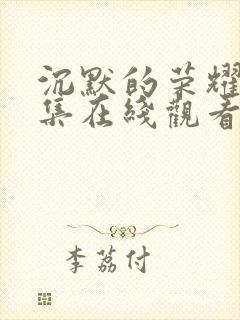 沉默的荣耀
集在綫觀看
李荔付